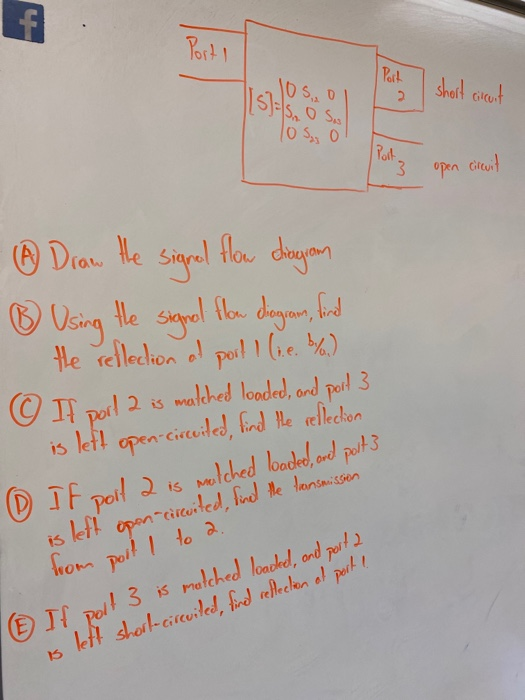 f
Port 1
Port 2 short circuit
[S]=|0 S₁₂ 0|
|S₁₂ 0 S₂₃|
|0 S₂₃ 0|
Port 3 open circuit
(A) Draw the signal flow diagram
(B) Using the signal flow diagram, find
the reflection at port 1 (i.e. b₁/a₁)
(C) If port 2 is matched loaded, and port 3
is left open-circuited, find the reflection
(D) IF port 2 is matched loaded, and port 3
is left open-circuited, find the transmission
from port 1 to 2.
(E) If port 3 is matched loaded, and port 2
is left short-circuited, find reflection at port 1.